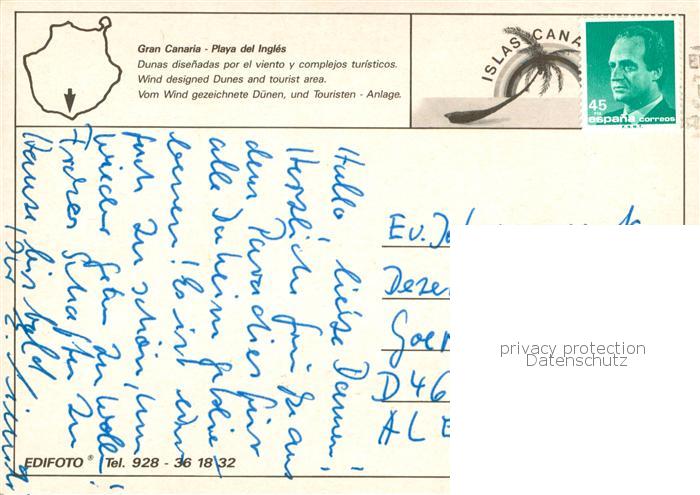 Gran Canaria - Playa del Inglés
Dunas diseñadas por el viento y complejos turísticos.
Wind designed Dunes and tourist area.
Vom Wind gezeichnete Dünen, und Touristen - Anlage.
ISLAS CANA
45
PTA
españa correos
Hallo liebe Damen!
Herzliche Grüße aus
dem Paradies für
alle Daheimgeblie-
benen! Es ist ein-
fach zu schön, um
wieder gehen zu wollen!
Frohes Schaffen zu
Hause bis bald
Ev. Jo
Deze
Goer
D46
ALE
privacy protection
Datenschutz
EDIFOTO ® Tel. 928 - 36 18 32